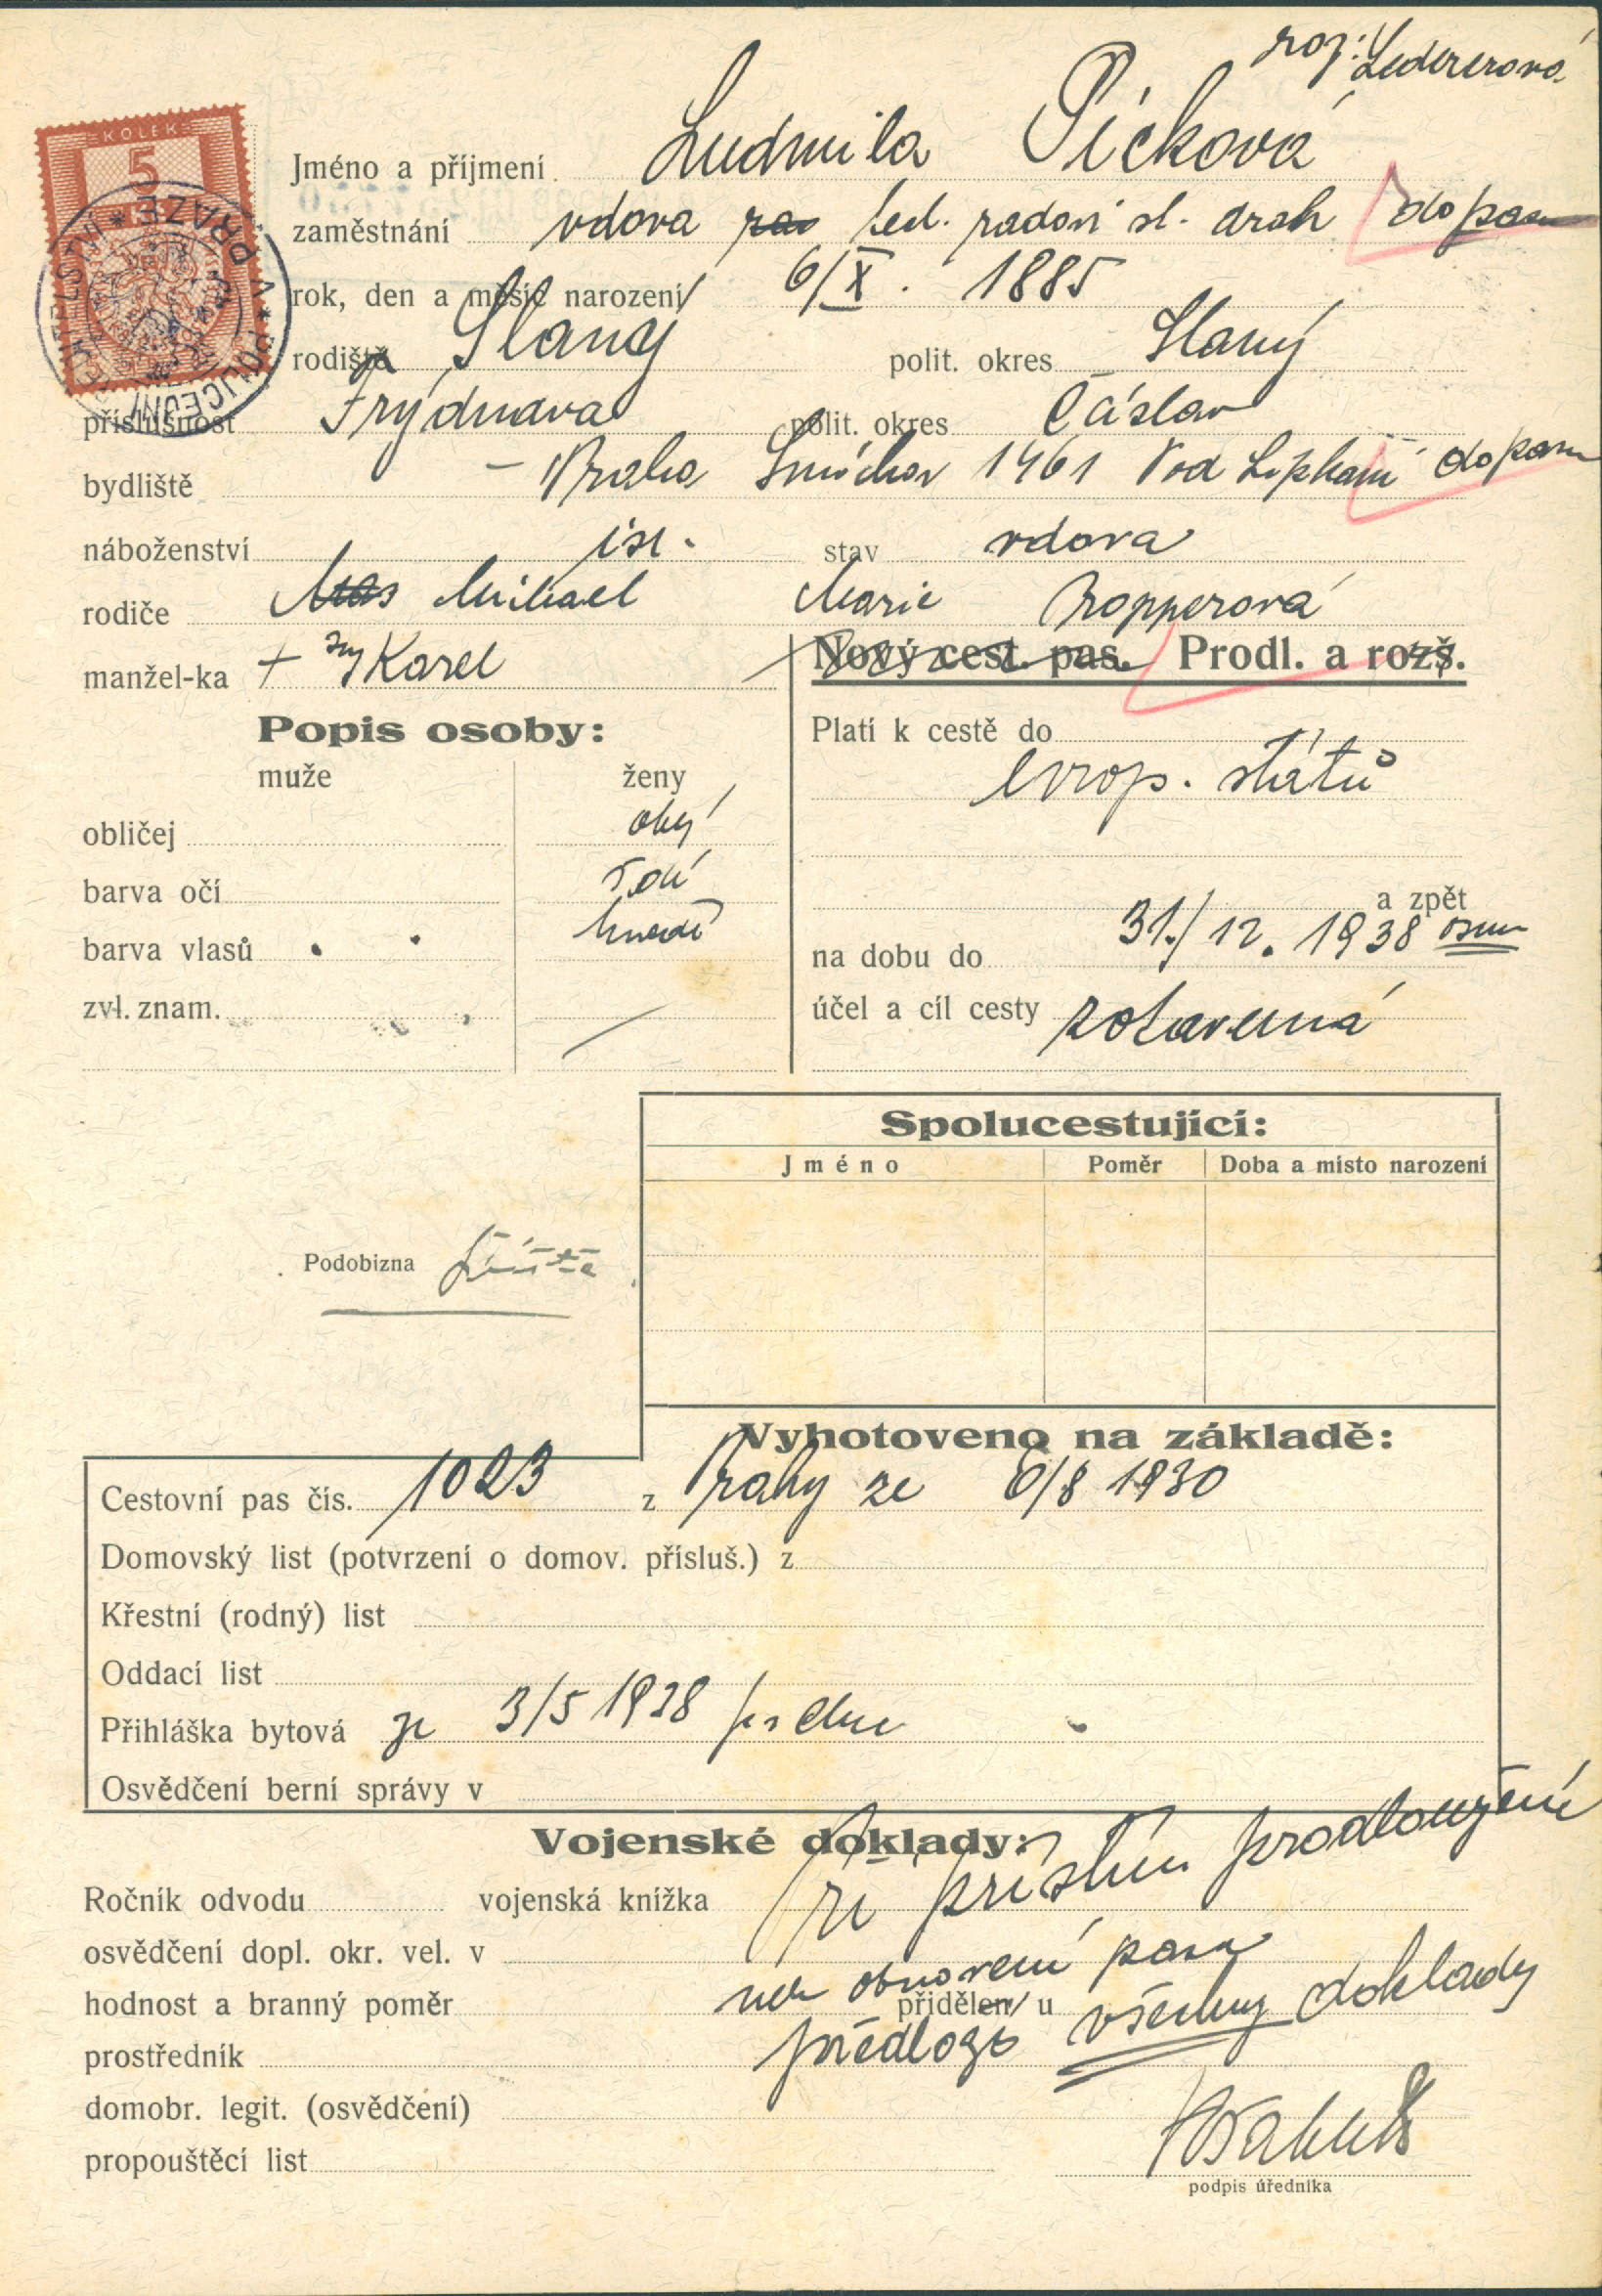 roz: Ledererová
KOLEK
5
POLICEJNÍ ŘEDITELSTVÍ * V PRAZE *
Jméno a příjmení Ludmila Pícková
zaměstnání vdova řed. radovi st. drah do pasu
rok, den a měsíc narození 6/X. 1885
rodiště Slaný polit. okres Slaný
příslušnost Frýdnava polit. okres Čáslav
bydliště - Praha Smíchov 1461 Pod Lipkami do pasu
náboženství isr. stav vdova
rodiče Michael Marie Propperová
manžel-ka + Karel
Nový cest. pas. Prodl. a rozš.
Popis osoby:
muže ženy
Platí k cestě do
evrop. států
obličej obl.
barva očí šedé
barva vlasů hnědé
zvl. znam.
a zpět
na dobu do 31./12. 1938 osm
účel a cíl cesty zotavená
Spolucestující:
Jméno Poměr Doba a místo narození
Podobizna
Vyhotoveno na základě:
Cestovní pas čís. 1023 z Prahy ze 6/8 1930
Domovský list (potvrzení o domov. přísluš.) z
Křestní (rodný) list
Oddací list
Přihláška bytová ze 3/5 1938
Osvědčení berní správy v
Vojenské doklady:
Ročník odvodu vojenská knížka
Při příštím prodloužení
osvědčení dopl. okr. vel. v
neb obnovení pasu
hodnost a branný poměr přidělen u
předloží všechny doklady
prostředník
domobr. legit. (osvědčení)
propouštěcí list
podpis úředníka